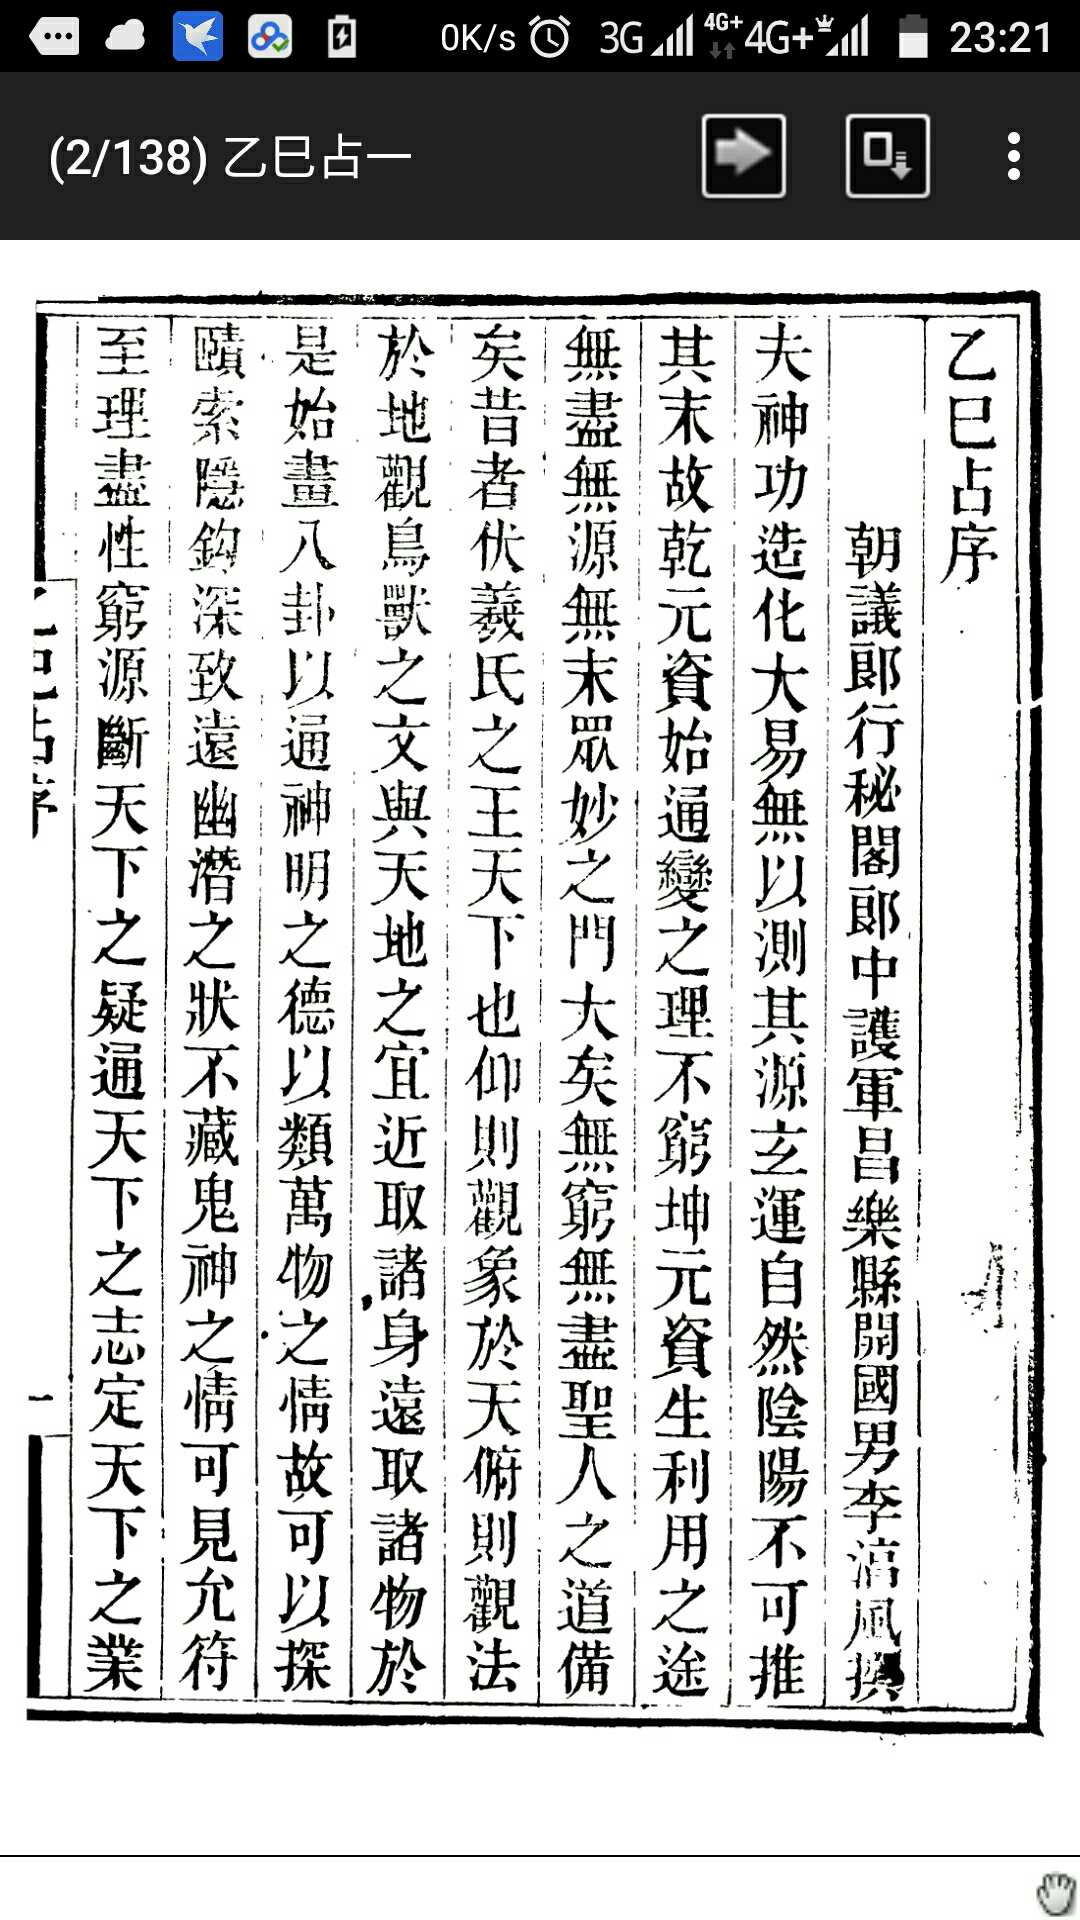 0K/s 3G 4G+ 4G+ 23:21
(2/138) 乙巳占一
乙巳占序
朝議郎行秘閣郎中護軍昌樂縣開國男李淳風撰
夫神功造化大易無以測其源玄運自然陰陽不可推
其末故乾元資始通變之理不窮坤元資生利用之途
無盡無源無末眾妙之門大矣無窮無盡聖人之道備
矣昔者伏羲氏之王天下也仰則觀象於天俯則觀法
於地觀鳥獸之文與天地之宜近取諸身遠取諸物於
是始畫八卦以通神明之德以類萬物之情故可以探
賾索隱鈎深致遠幽潛之狀不藏鬼神之情可見允符
至理盡性窮源斷天下之疑通天下之志定天下之業
乙巳占序
一